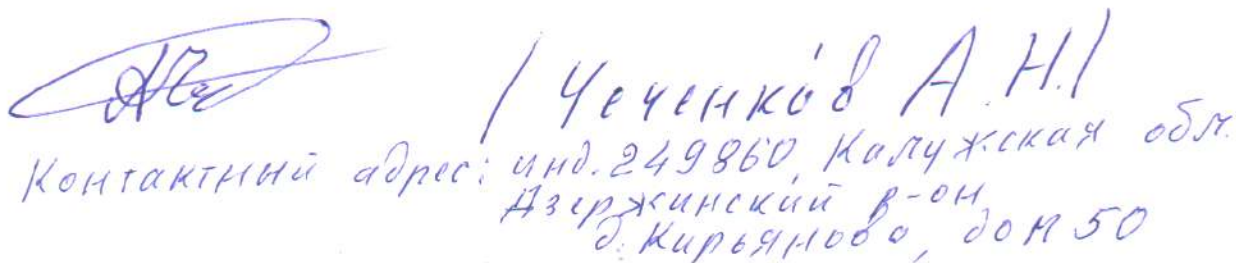 /Чеченков А.Н./
Контактный адрес: инд. 249860, Калужская обл.
Дзержинский р-он
д. Кирьяново, дом 50